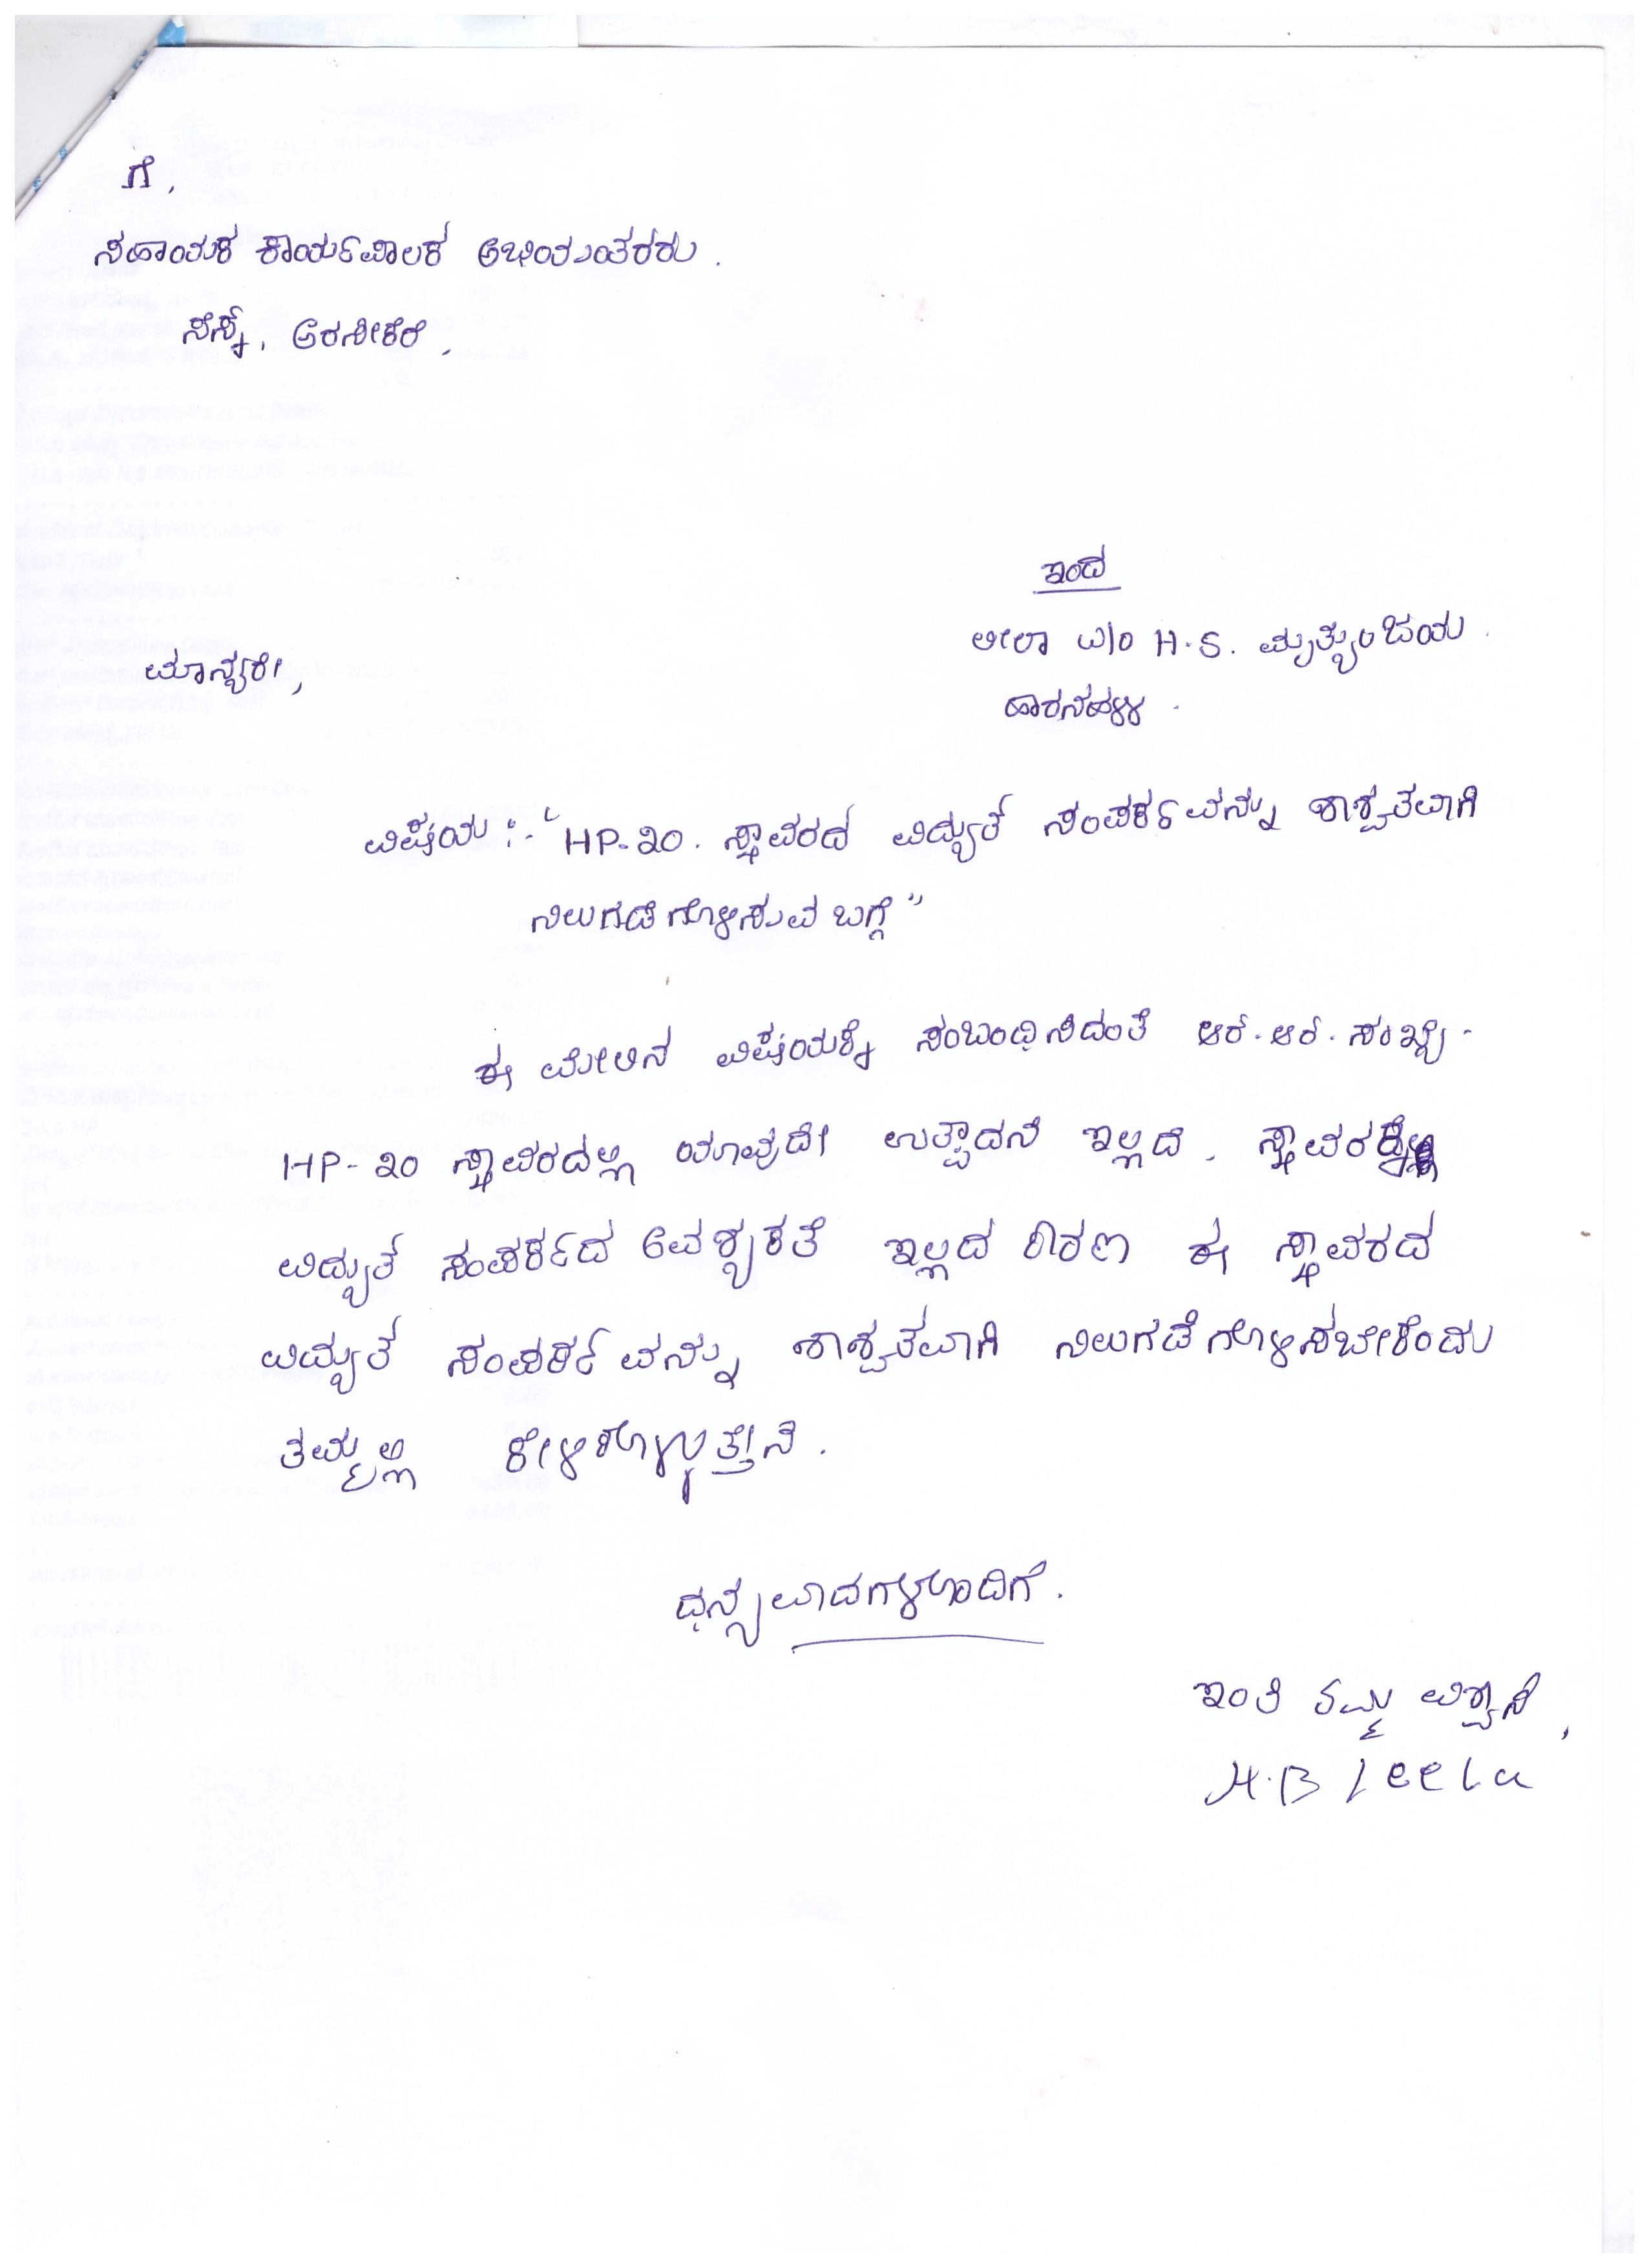 ಗೆ,
ಸಹಾಯಕ ಕಾರ್ಯಪಾಲಕ ಅಭಿಯಂತರರು.
ಸೆಸ್ಕ್, ಅರಸೀಕೆರೆ,
ಇಂದ
ಲೀಲಾ W/o H.S. ಮೃತ್ಯುಂಜಯ
ಹಾರನಹಳ್ಳಿ.
ಮಾನ್ಯರೇ,
ವಿಷಯ :- "HP-20. ಸ್ಥಾವರದ ವಿದ್ಯುತ್ ಸಂಪರ್ಕವನ್ನು ಶಾಶ್ವತವಾಗಿ
ನಿಲುಗಡೆಗೊಳಿಸುವ ಬಗ್ಗೆ"
ಈ ಮೇಲಿನ ವಿಷಯಕ್ಕೆ ಸಂಬಂಧಿಸಿದಂತೆ ಆರ್.ಆರ್.ಸಂಖ್ಯೆ-
HP-20 ಸ್ಥಾವರದಲ್ಲಿ ಯಾವುದೇ ಉತ್ಪಾದನೆ ಇಲ್ಲದೆ, ಸ್ಥಾವರಕ್ಕೆ
ವಿದ್ಯುತ್ ಸಂಪರ್ಕದ ಅವಶ್ಯಕತೆ ಇಲ್ಲದ ಕಾರಣ ಈ ಸ್ಥಾವರದ
ವಿದ್ಯುತ್ ಸಂಪರ್ಕವನ್ನು ಶಾಶ್ವತವಾಗಿ ನಿಲುಗಡೆಗೊಳಿಸಬೇಕೆಂದು
ತಮ್ಮಲ್ಲಿ ಕೇಳಿಕೊಳ್ಳುತ್ತೇನೆ.
ಧನ್ಯವಾದಗಳೊಂದಿಗೆ.
ಇಂತಿ ತಮ್ಮ ವಿಶ್ವಾಸಿ,
H.B Leela